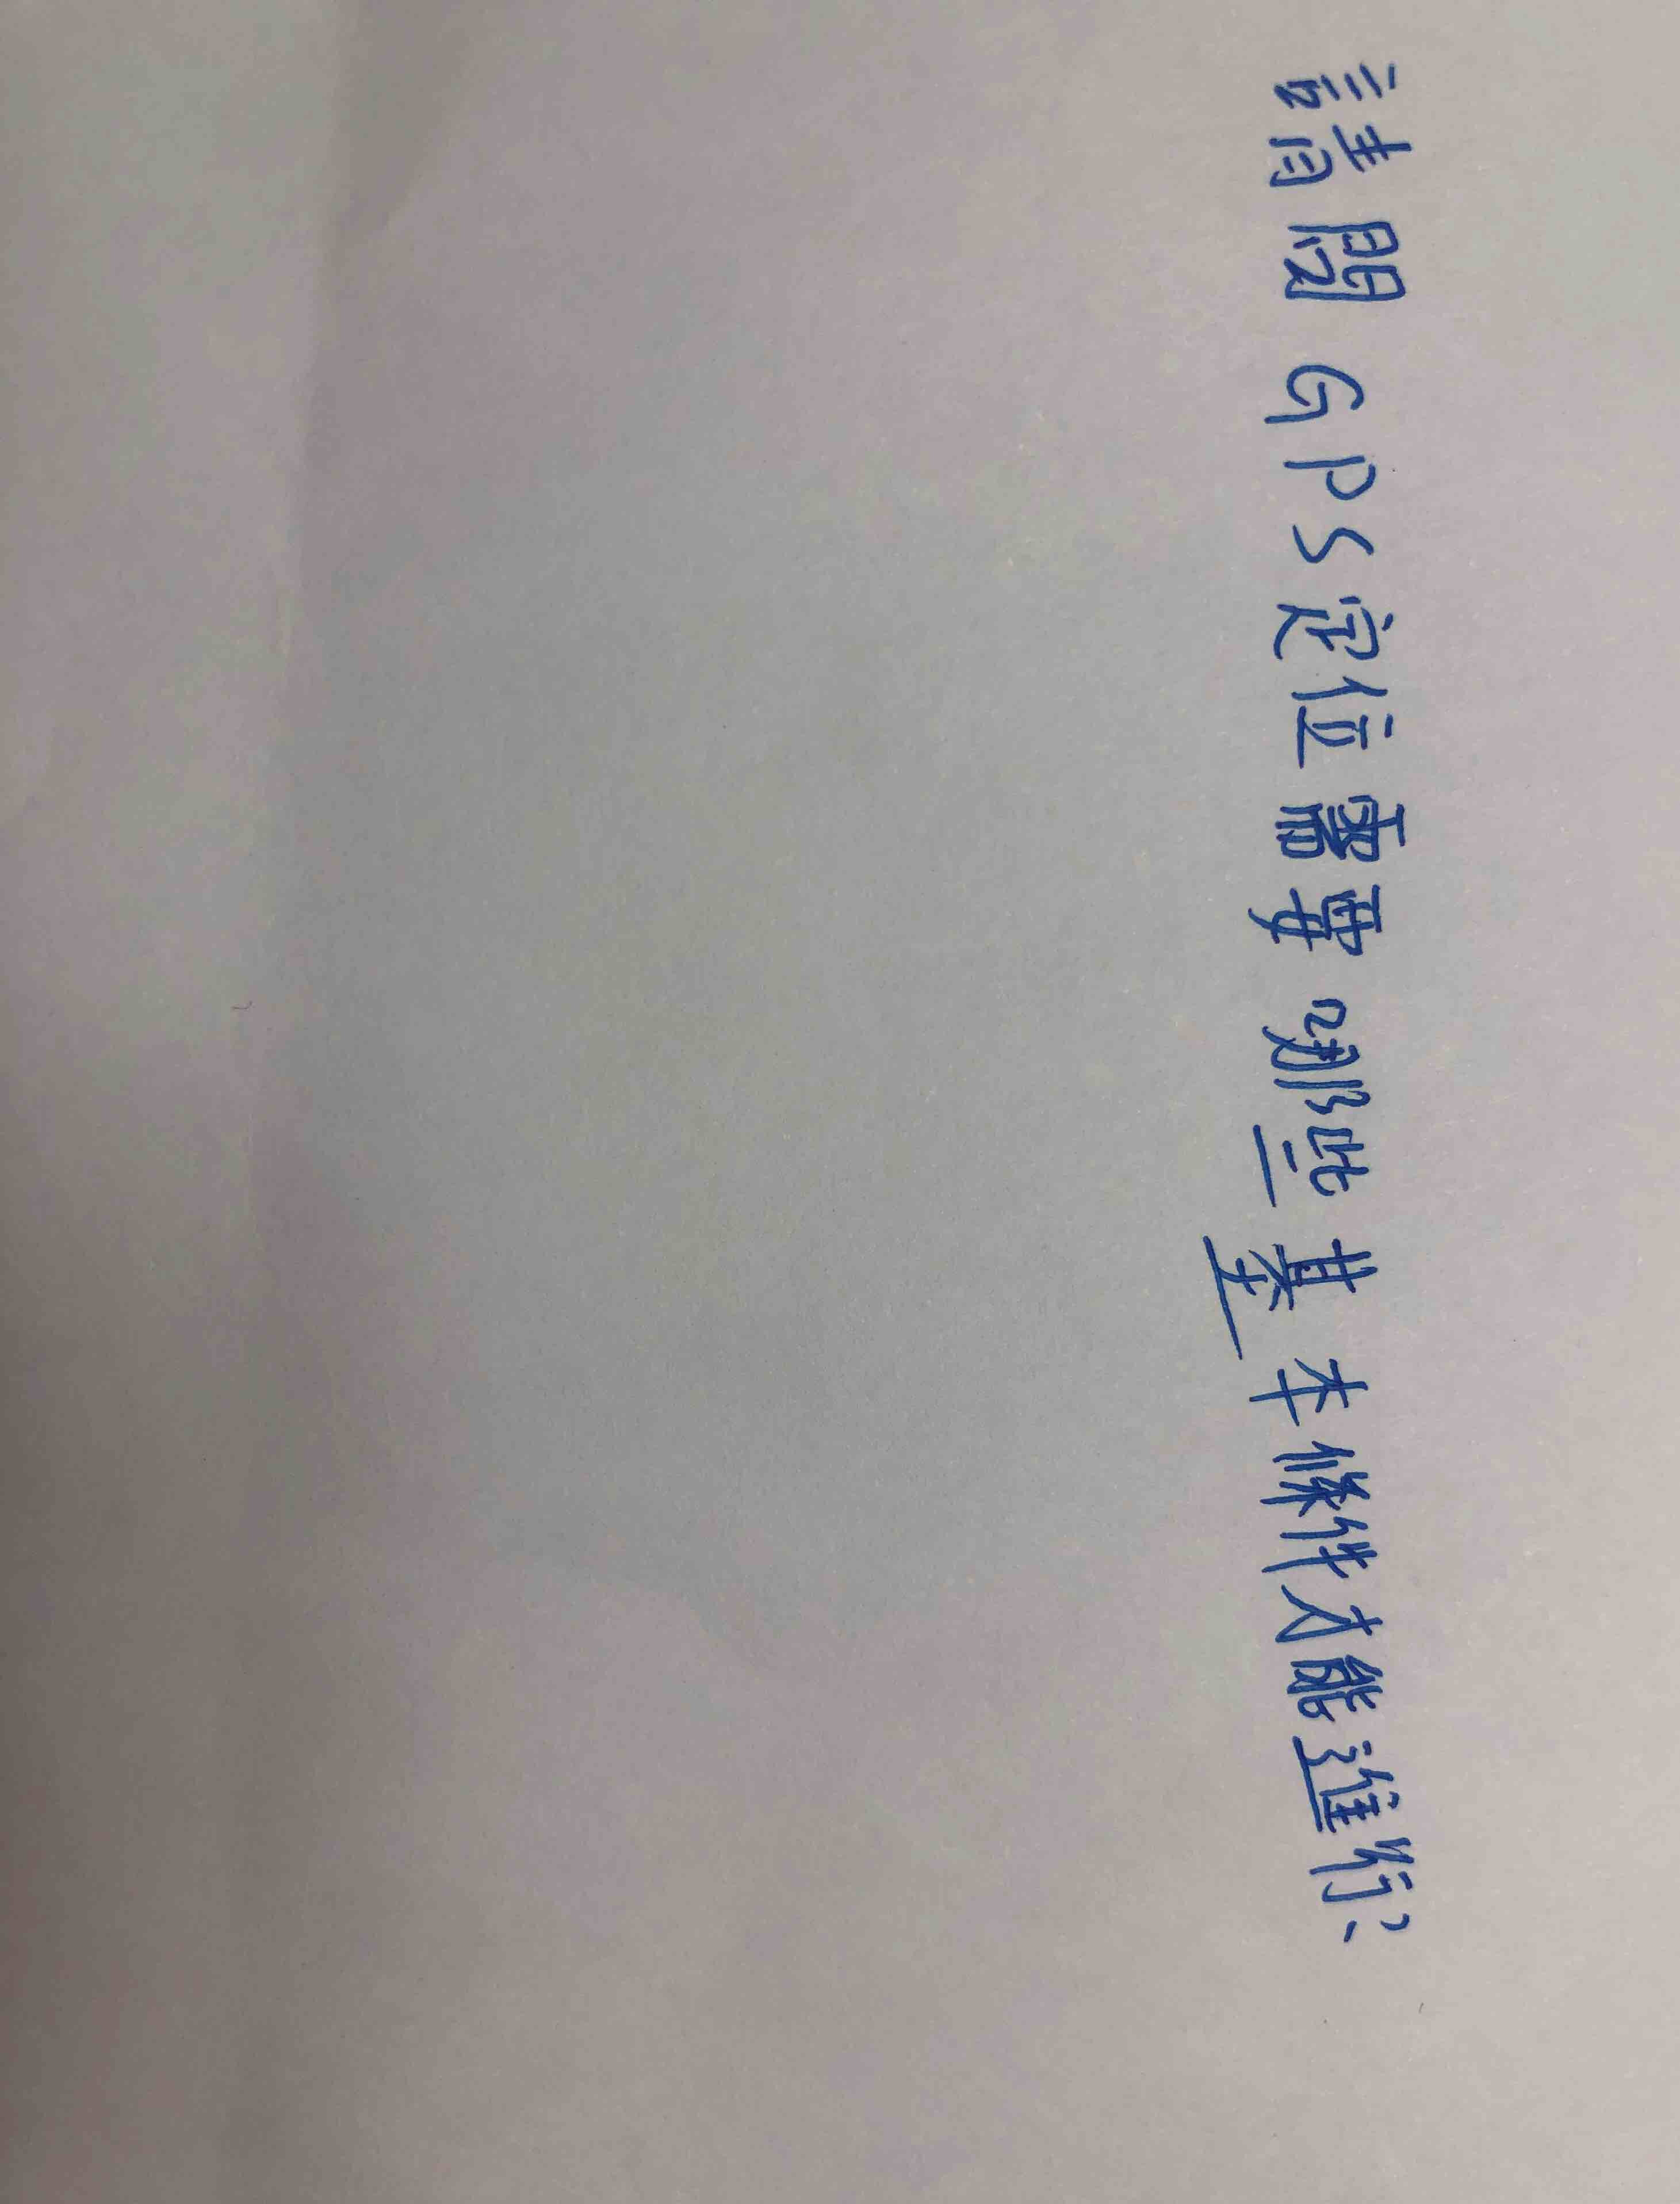 請問GPS定位需要哪些基本條件才能進行?